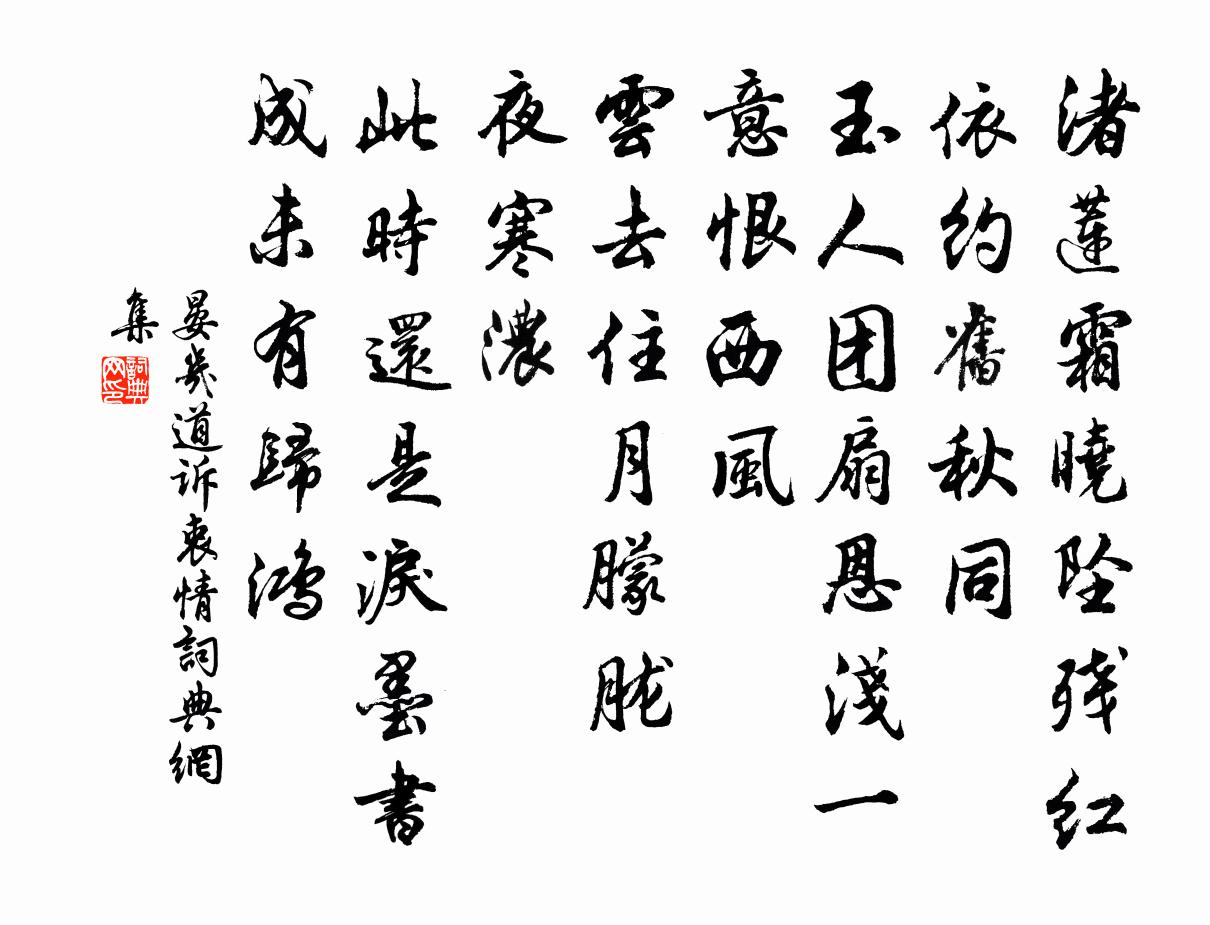 渚蓮霜曉坠残红
依约舊秋同
玉人团扇恩淺一
意恨西風
雲去住月朦胧
夜寒濃
此時還是淚墨書
成未有歸鸿
晏幾道訴衷情詞典網
集
詞典
网印